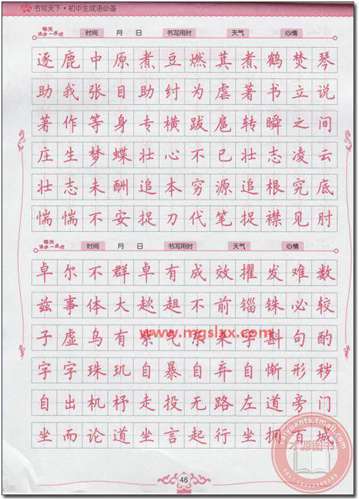 书写天下·初中生成语必备
每天
进步一点点
时间 月 日 书写用时 天气 心情
逐鹿中原煮豆燃萁煮鹤焚琴
助我张目助纣为虐著书立说
著作等身专横跋扈转瞬之间
庄生梦蝶壮心不已壮志凌云
壮志未酬追本穷源追根究底
惴惴不安捉刀代笔捉襟见肘
每天
进步一点点
时间 月 日 书写用时 天气 心情
卓尔不群卓有成效擢发难数
兹事体大趑趄不前锱铢必较
www.mgslxx.com
子虚乌有紫气东来字斟句酌
字字珠玑自暴自弃自惭形秽
自出机杼走投无路左道旁门
坐而论道坐言起行坐拥百城
46